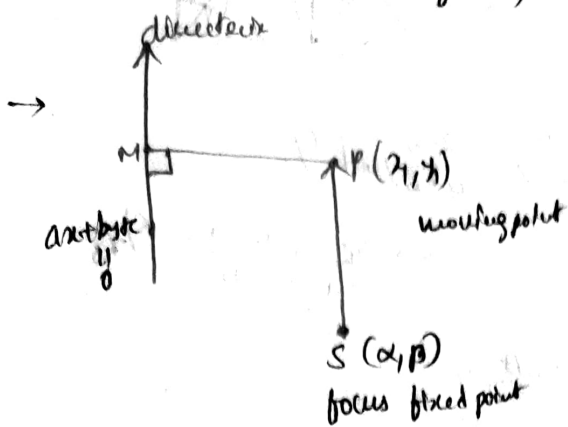 directrix
→
M
P (x₁, y₁)
moving point
ax+by+c
||
0
S (α, β)
focus fixed point